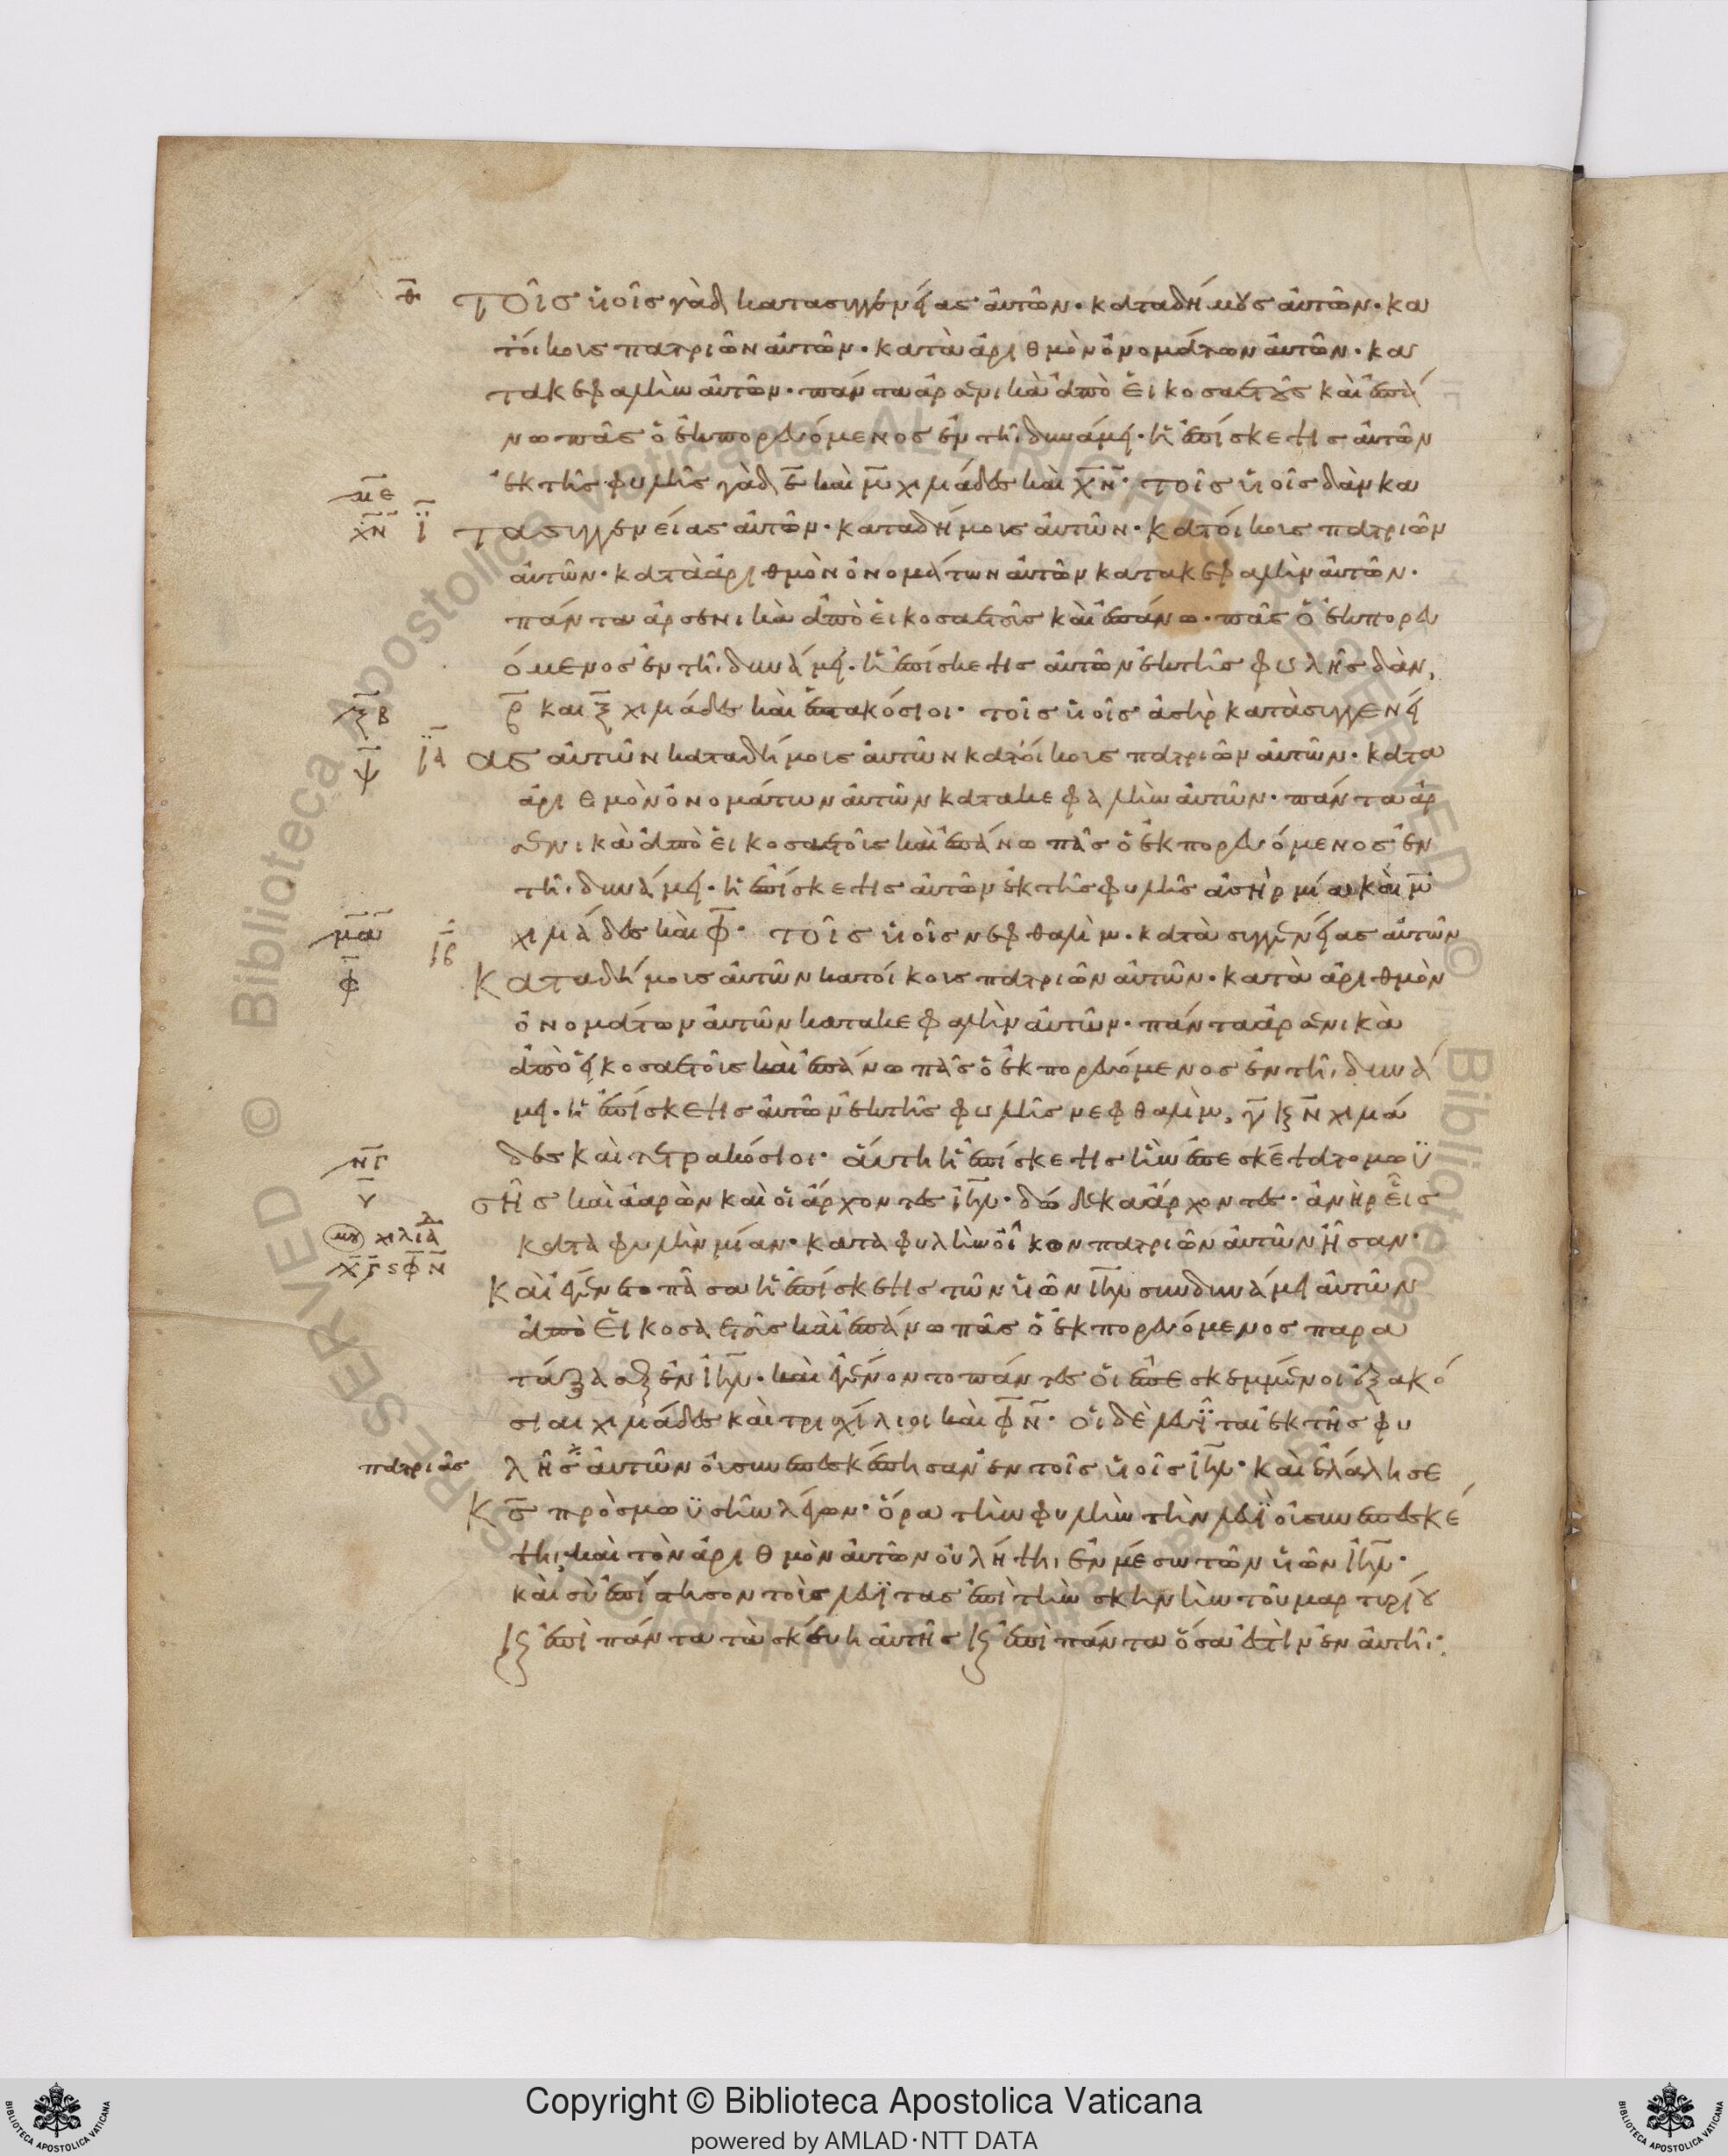 θ τοῖς ὑιοῖς γὰδ κατασυγγενείας ἀυτῶν· καταδήμους ἀυτῶν· κα
τόικους πατριῶν ἀυτῶν· κατὰ ἀριθμὸν ὀνομάτων ἀυτῶν· κα
τακεφαλὴν ἀυτῶν· πάντα ἀρσενικὰ ἀπὸ ἐικοσαετοῦς καὶ ἐπά
νω πᾶς ὁ ἐκπορευόμενος ἐν τῆι δυνάμει· ἡ ἐπίσκεψις ἀυτῶν
με ἐκ τῆς φυλῆς γὰδ ε̄ καὶ μ̄ χιλιάδες καὶ χ̄ν̄· τοῖς ὑιοῖς δὰν κα
χν ϊ τασυγγενείας ἀυτῶν· καταδήμους ἀυτῶν· κατόικους πατριῶν
ἀυτῶν· κατὰ ἀριθμὸν ὀνομάτων ἀυτῶν κατακεφαλὴν ἀυτῶν·
πάντα ἀρσενικὰ ἀπὸ ἐικοσαετοῦς καὶ ἐπάνω· πᾶς ὁ ἐκπορευ
όμενος ἐν τῆι δυνάμει· ἡ ἐπίσκεψις ἀυτῶν ἐκ τῆς φυλῆς δὰν,
ξβ β̄ και ξ̄ χιλιάδες καὶ ἑπτακόσιοι· τοῖς ὑιοῖς ἀσὴρ κατὰσυγγενεί
ψ ϊα ας ἀυτῶν καταδήμους ἀυτῶν κατόικους πατριῶν ἀυτῶν· κατα
ἀριθμὸν ὀνομάτων ἀυτῶν κατακεφαλὴν ἀυτῶν· πάντα ἀρ
σενικὰ ἀπὸ ἐικοσαετοῦς καὶ ἐπάνω πᾶς ὁ ἐκπορευόμενος ἐν
τῆι δυνάμει· ἡ ἐπίσκεψις ἀυτῶν ἐκ τῆς φυλῆς ἀσὴρ μία καὶ μ̄
μα ιβ χιλιάδες καὶ φ̄· τοῖς ὑιοῖς νεφθαλὶμ· κατὰ συγγενείας ἀυτῶν
φ καταδήμους ἀυτῶν κατόικους πατριῶν ἀυτῶν· κατὰ ἀριθμὸν
ὀνομάτων ἀυτῶν κατακεφαλὴν ἀυτῶν· πάντα ἀρσενικὰ
ἀπὸ εἰκοσαετοῦς καὶ ἐπάνω πᾶς ὁ ἐκπορευόμενος ἐν τῆι δυνά
μει· ἡ ἐπίσκεψις ἀυτῶν ἐκ τῆς φυλῆς νεφθαλὶμ, γ̄ ϗ ν̄ χιλιά
νγ δες καὶ τετρακόσιοι· ἅυτη ἡ ἐπίσκεψις ἣν ἐπεσκέψατο μωϋ
υ σῆς καὶ ἀαρὼν καὶ οἱ ἄρχοντες ἰη̄λ· δώδεκα ἄρχοντες· ἀνὴρ εἷς
χιλια κατὰ φυλὴν μίαν· κατὰ φυλὴν ὀίκων πατριῶν ἀυτῶν ἦσαν·
χγςφν καὶ ἐγένετο πᾶσα ἡ ἐπίσκεψις τῶν ὑιῶν ἰη̄λ συνδυνάμει ἀυτῶν
ἀπὸ ἐικοσαετοῦς καὶ ἐπάνω πᾶς ὁ ἐκπορευόμενος παρα
τάξασθαι ἐν ἰη̄λ· καὶ ἐγένοντο πάντες ὁι ἐπεσκεμμένοι ἑξακό
σιαι χιλιάδες καὶ τρισχίλιοι καὶ φ̄ν̄· ὁι δὲ λευῖται ἐκ τῆς φυ
πατριᾶς λῆς ἀυτῶν ὀυ συνεπεσκέπησαν ἐν τοῖς ὑιοῖς ἰη̄λ· καὶ ἐλάλησε
κ̄ς̄ πρὸς μωϋσῆν λέγων· ὅρα τὴν φυλὴν τὴν λευὶ ὀυ συνεπισκέ
ψηι καὶ τὸν ἀριθμὸν ἀυτῶν ὀυ λήψηι ἐν μέσω τῶν ὑιῶν ἰη̄λ·
καὶ σὺ ἐπίστησον τοὺς λευίτας ἐπὶ τὴν σκηνὴν τοῦ μαρτυρίου
ϗ ἐπὶ πάντα τὰ σκέυη ἀυτῆς ϗ ἐπὶ πάντα ὅσα ἐστὶν ἐν ἀυτῆι·